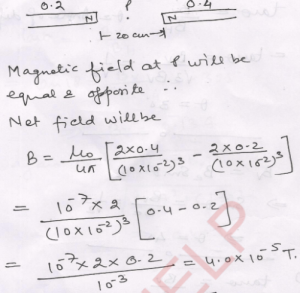 0.2 P 0.4
N N
⊢ 20 cm →
Magnetic field at P will be
equal & opposite ∴
Net field will be
B = μ₀/4π [ 2×0.4/(10×10⁻²)³ − 2×0.2/(10×10⁻²)³ ]
= 10⁻⁷ × 2/(10×10⁻²)³ [ 0.4 − 0.2 ]
= 10⁻⁷ × 2 × 0.2/10⁻³ = 4.0×10⁻⁵ T.
HELP